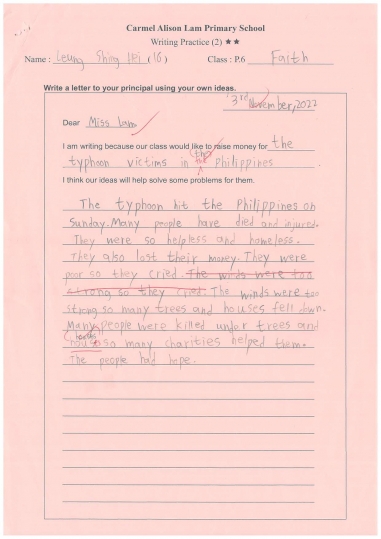 Carmel Alison Lam Primary School
Writing Practice (2) ★★
Name : Leung Shing (16) Class : P.6 Faith
Write a letter to your principal using your own ideas.
3rd November, 2022
Dear Miss Lam
I am writing because our class would like to raise money for the
the
typhoon victims in Philippines .
I think our ideas will help solve some problems for them.
The typhoon hit the Philippines on
Sunday. Many people have died and injured.
They were so helpless and homeless.
They also lost their money. They were
poor so they cried. The winds were too
strong so they cried. The winds were too
strong so many trees and houses fell down.
Many people were killed under trees and
houses
so many charities helped them.
The people had hope.